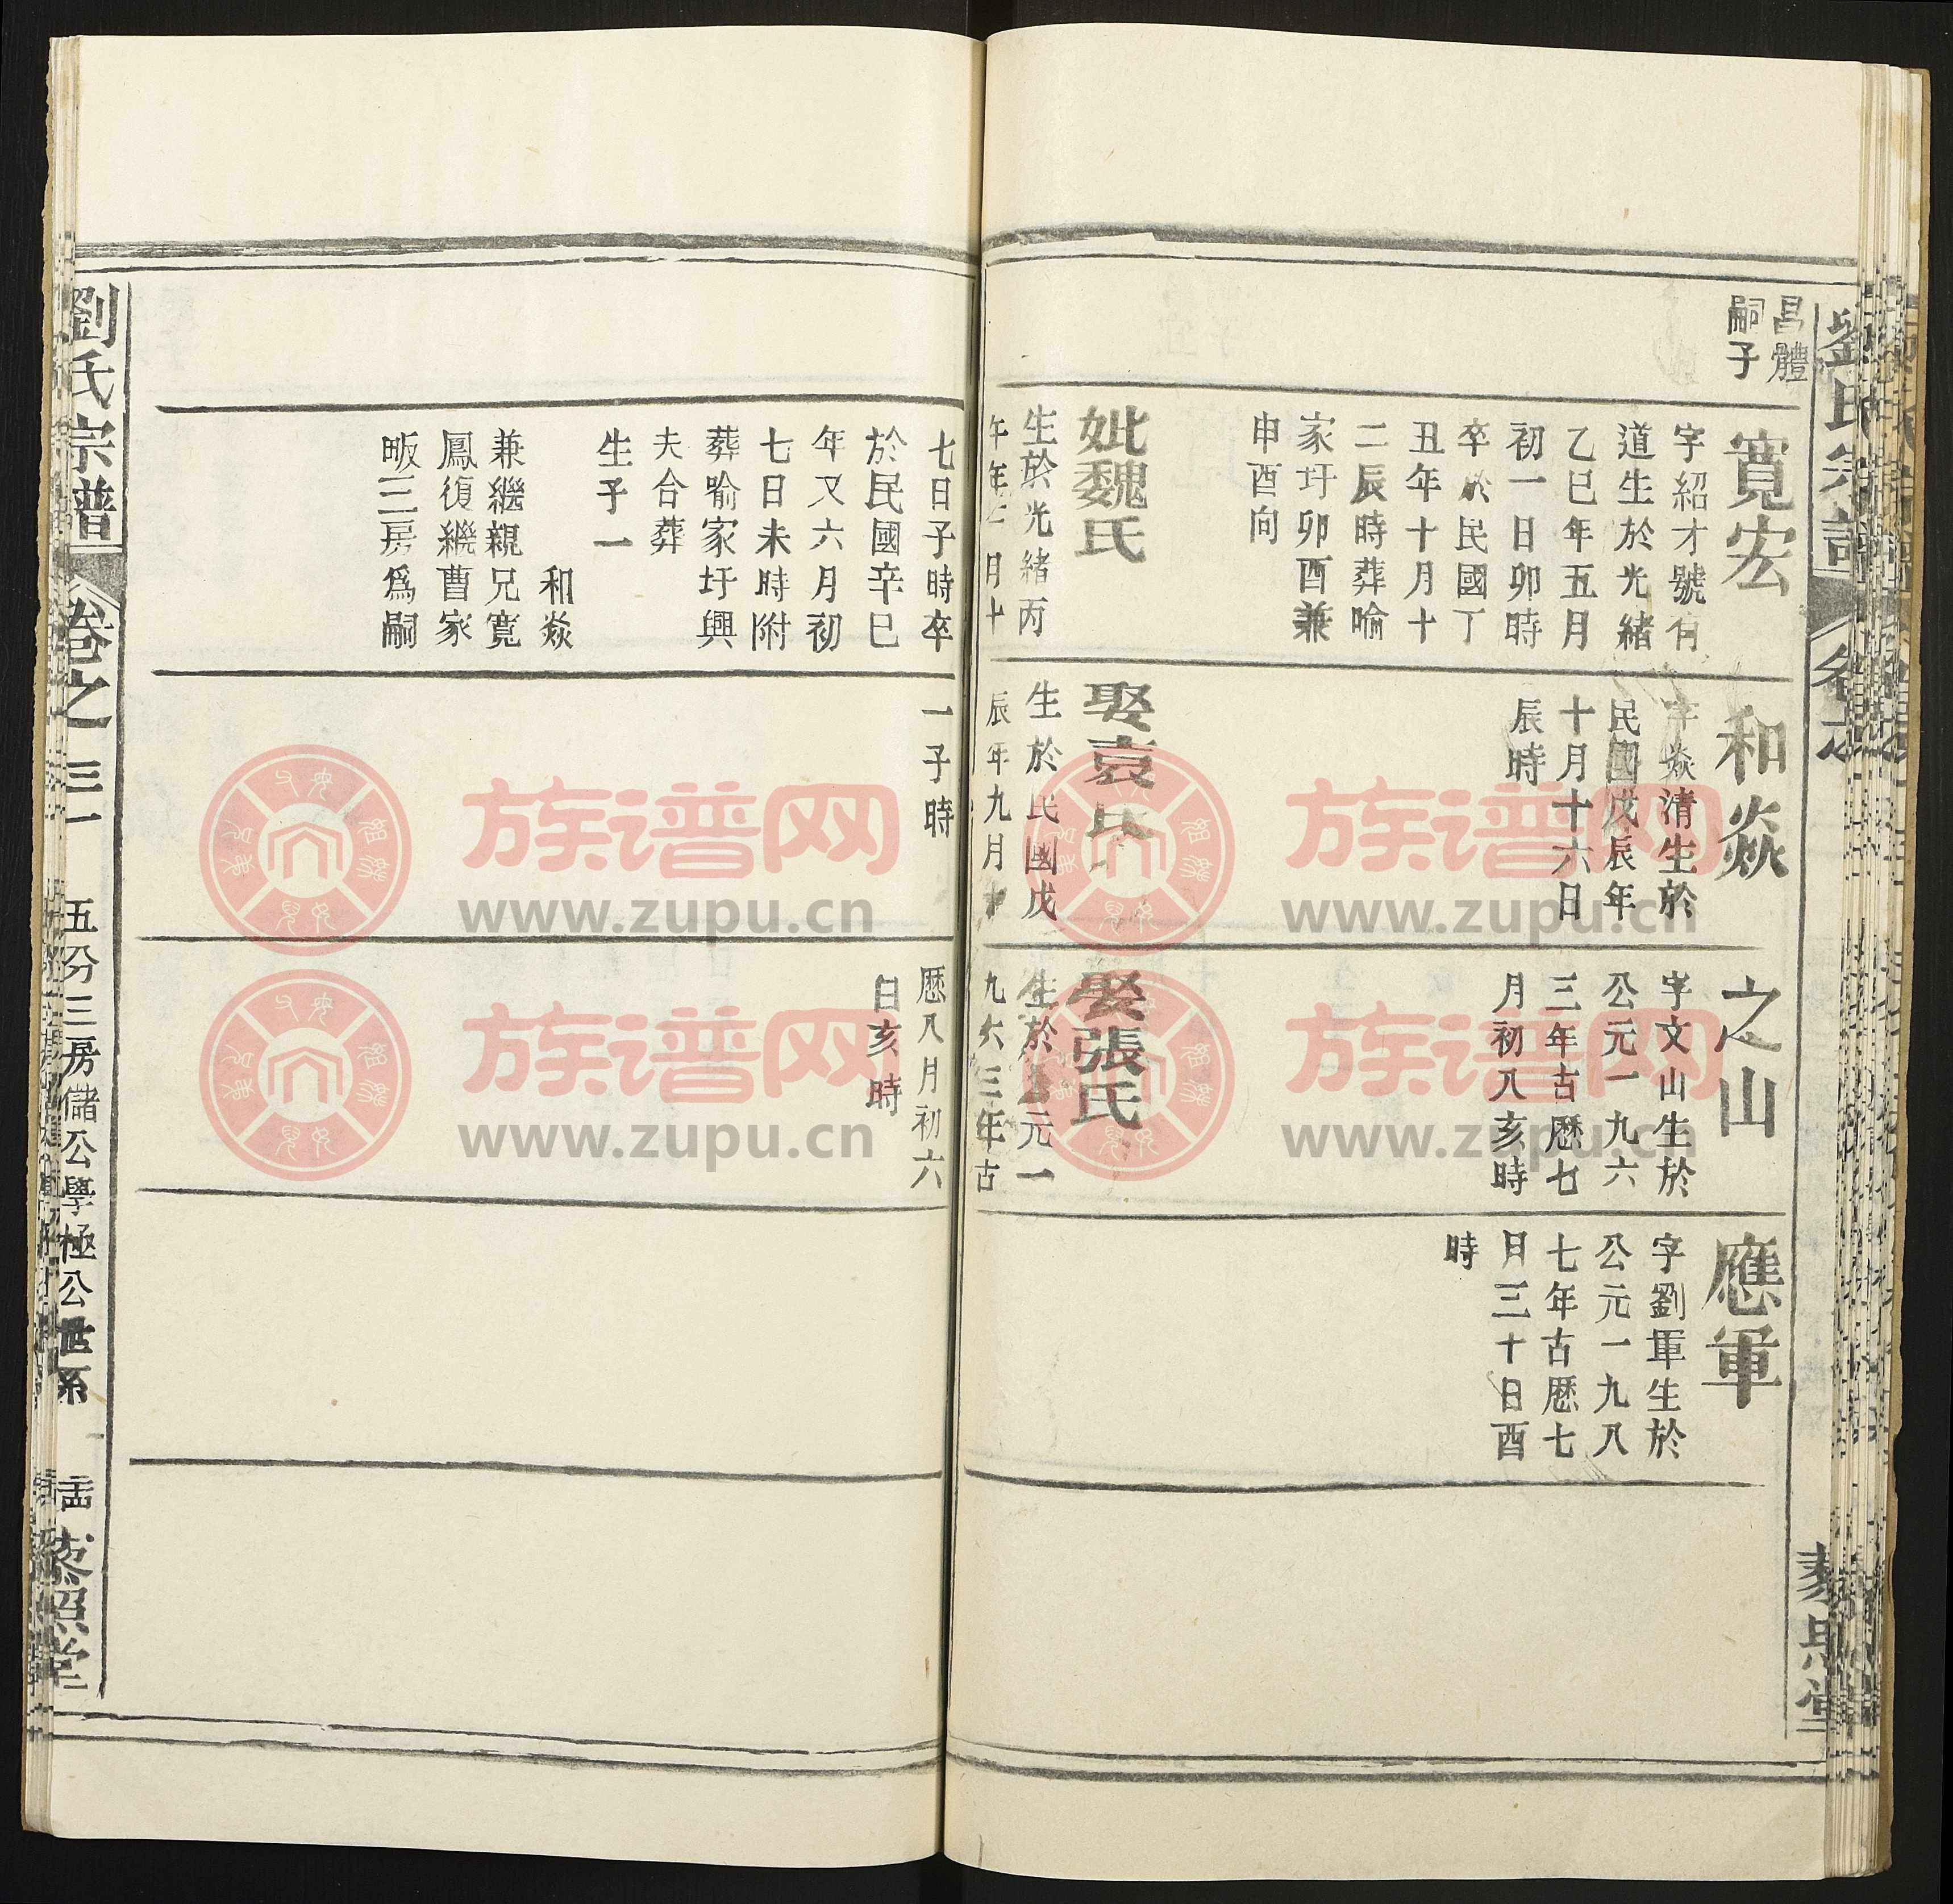 昌體
嗣子
寬宏
字紹才號有
道生於光緒
乙巳年五月
初一日卯時
卒於民國丁
丑年十月十
二辰時葬喻
家圩卯酉兼
申酉向
妣魏氏
生於光緒丙
午年 月十
七日子時卒
於民國辛巳
年又六月初
七日未時附
葬喻家圩興
夫合葬
生子一
和焱
兼繼親兄寬
鳳復繼曹家
畈三房爲嗣
和焱
字焱清生於
民國戊辰年
十月十六日
辰時
娶袁氏
生於民國戊
辰年九月十
一子時
之山
字文山生於
公元一九六
三年古曆七
月初八亥時
娶張氏
生於公元一
九六三年古
曆八月初六
日亥時
應軍
字劉軍生於
公元一九八
七年古曆七
月三十日酉
時
劉氏宗譜
卷之三
五分三房儲公學極公世系
藜照堂
劉氏宗譜
族谱网
www.zupu.cn
族谱网
www.zupu.cn
族谱网
www.zupu.cn
族谱网
www.zupu.cn